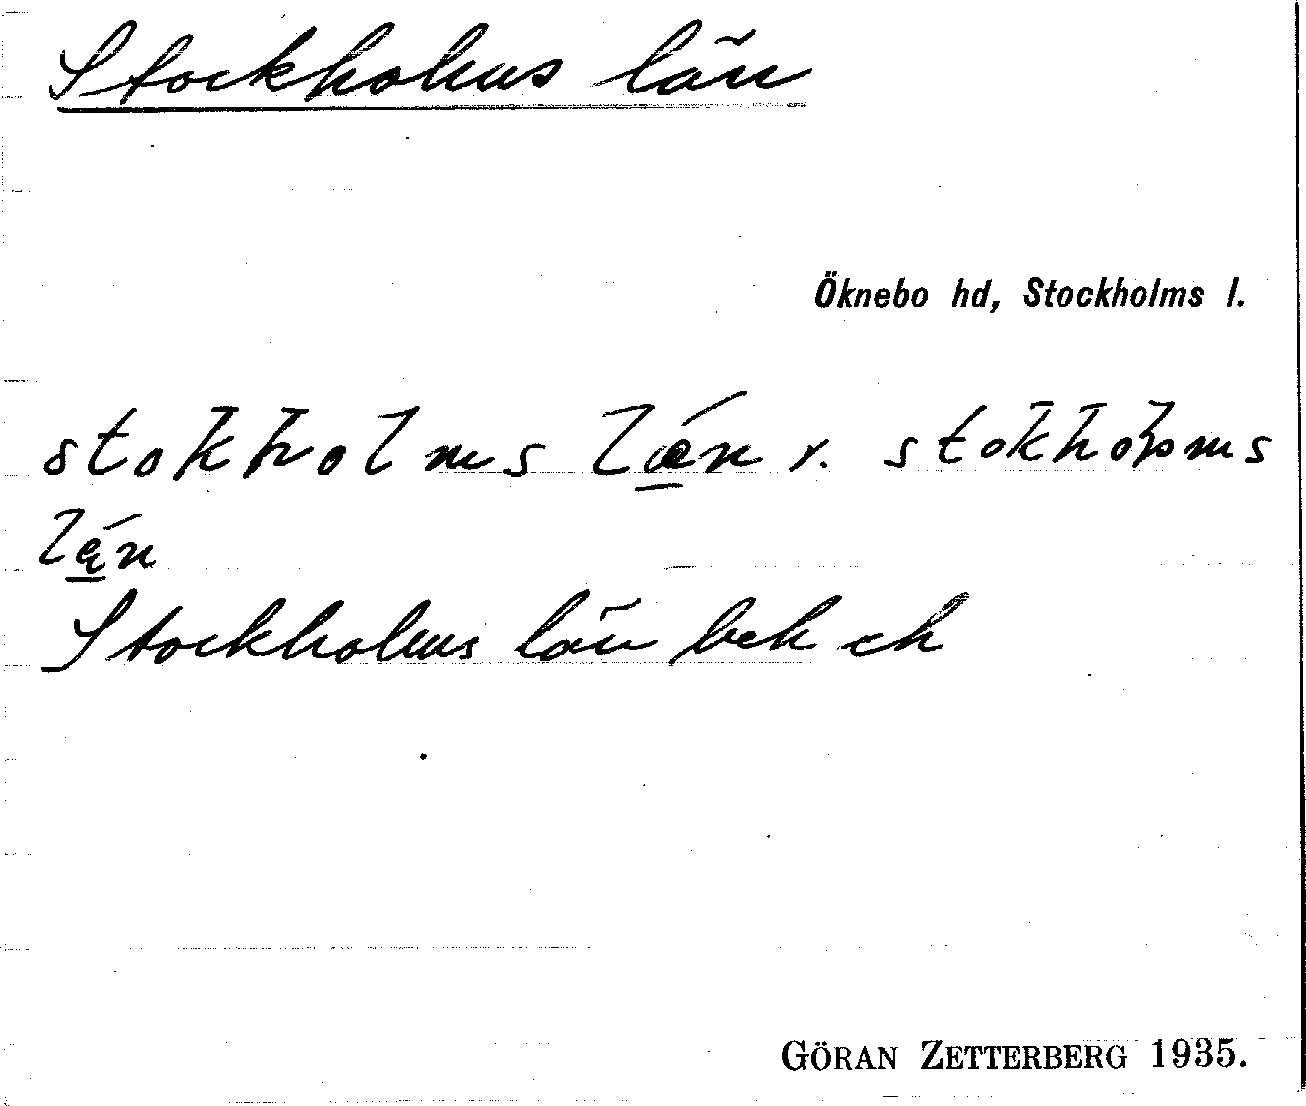 Stockholms län
Öknebo hd, Stockholms l.
stokholms lǽ̱n r. stokhoms
lę̱́n
Stockholms län bek ek
GÖRAN ZETTERBERG 1935.